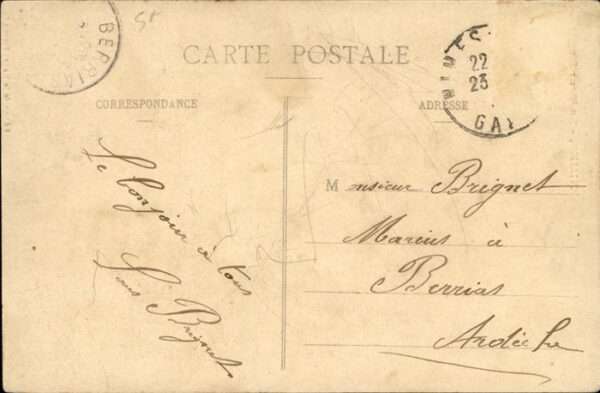 BERRIAS
CARTE POSTALE
NIMES
22
23
GA
CORRESPONDANCE
ADRESSE
Le bonjour à tous
Brignet
Monsieur Brignet
Marius à
Berrias
Ardèche